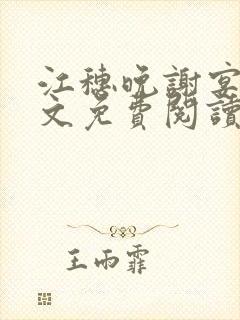 江穗晚謝宴
文免費閱讀
王雨霏